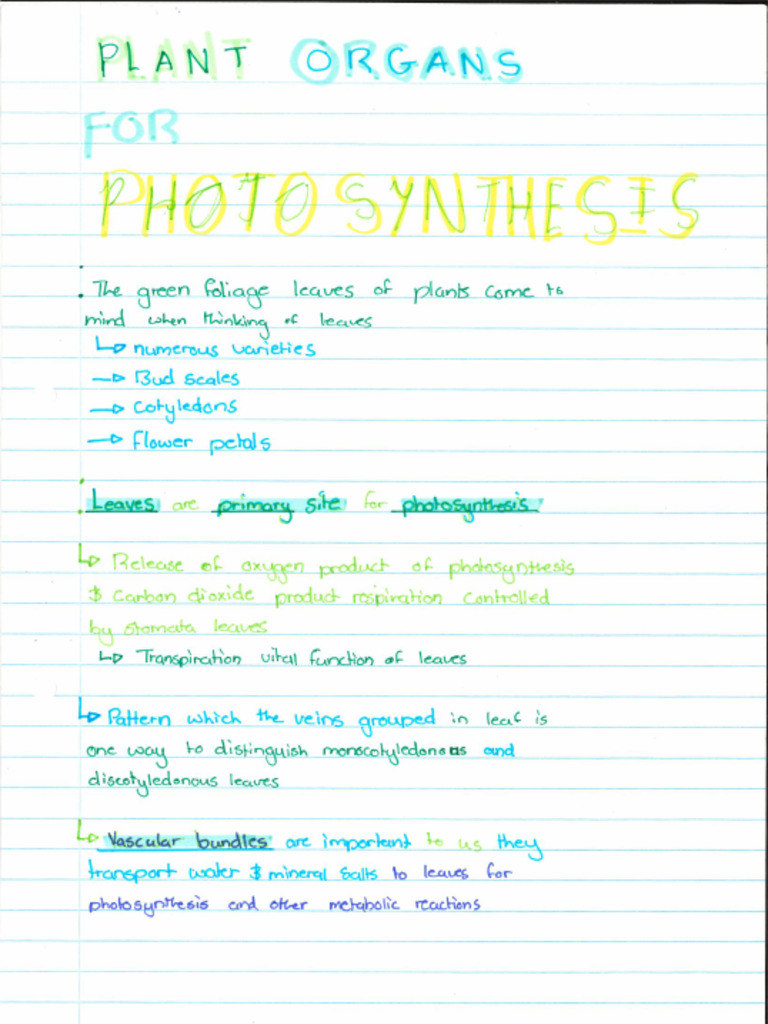 PLANT ORGANS
FOR
PHOTOSYNTHESIS
. The green foliage leaves of plants come to
mind when thinking of leaves
↳ numerous varieties
→ Bud scales
→ cotyledons
→ flower petals
. Leaves are primary site for photosynthesis
↳ Release of oxygen product of photosynthesis
& carbon dioxide product respiration controlled
by stomata leaves
↳ Transpiration vital function of leaves
↳ Pattern which the veins grouped in leaf is
one way to distinguish monocotyledonous and
discotyledonous leaves
↳ Vascular bundles are important to us they
transport water & mineral salts to leaves for
photosynthesis and other metabolic reactions